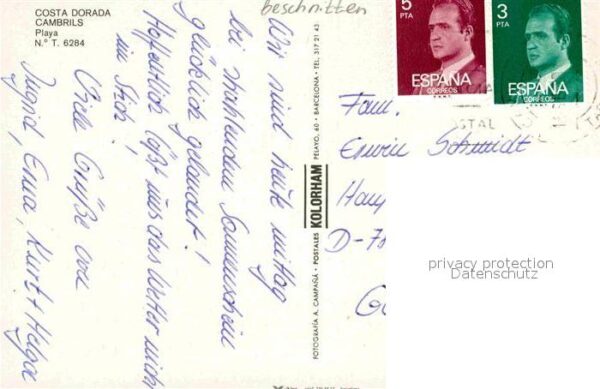 COSTA DORADA
CAMBRILS
Playa
N.º T. 6284
beschnitten
Wir sind heute mittag
bei strahlendem Sonnenschein
glücklich gelandet!
Hoffentlich läßt uns das Wetter nicht
im Stich.
Viele Grüße von
Ingrid, Erna, Kurt + Helga
FOTOGRAFIA A. CAMPAÑA • POSTALES KOLORHAM PELAYO, 60 • BARCELONA • TEL. 317 21 43
5
PTA
ESPAÑA
CORREOS
3
PTA
ESPAÑA
CORREOS
Fam.
Erwin Schmidt
D-7
privacy protection
Datenschutz